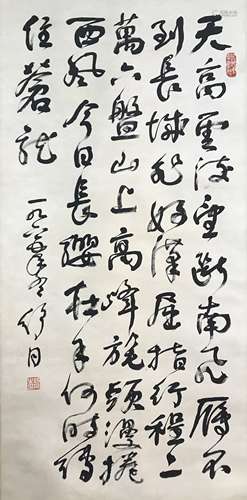 天高雲淡望斷南飛雁不
到長城非好漢屈指行程二
萬六盤山上高峰旄頭漫捲
西風今日長纓在手何時縛
住蒼龍
一九六年冬舒同